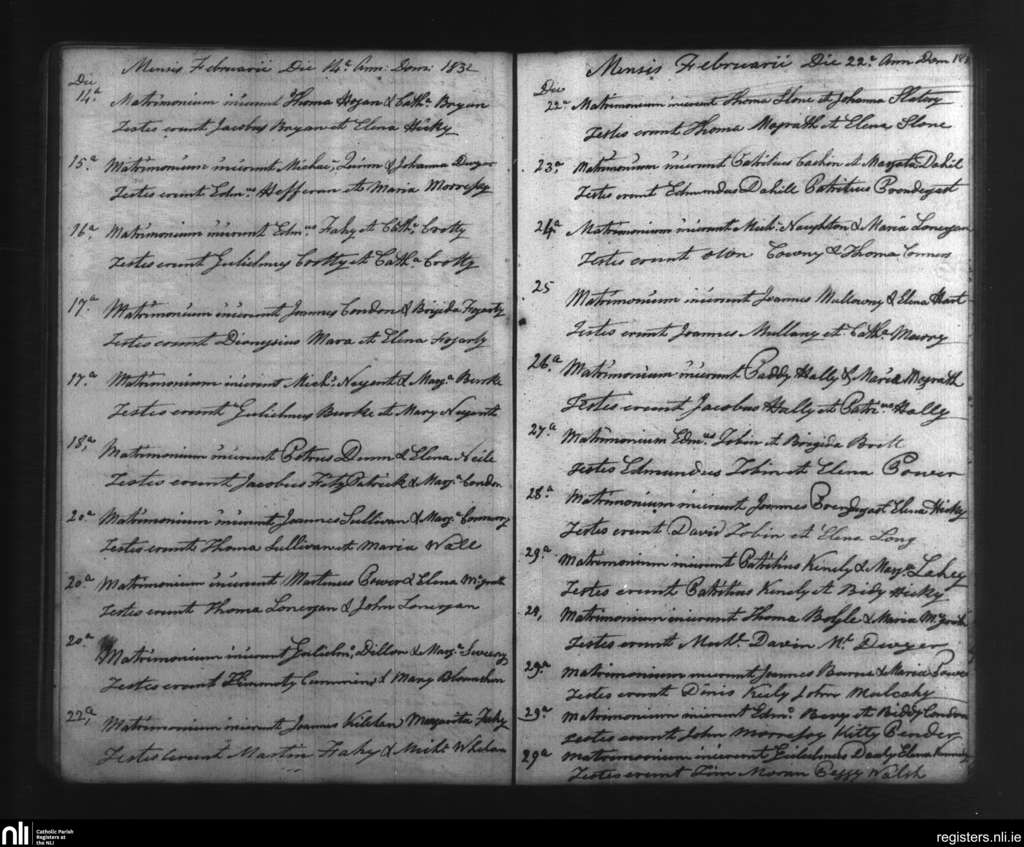 Mensis Februarii Die 14ª Ann: Dom: 1832
Die
14ª Matrimonium inierunt Thoma Hogan & Cathª Bryan
Testes erunt Jacobus Bryan et Elena Hicky
15ª Matrimonium inierunt Michae, Quinn & Johanna Dwyer
Testes erunt Edmus Hefferan et Maria Morresy
16ª Matrimonium inierunt Edmus Fahy et Cathª Crotty
Testes erunt Gulielmus Crotty et Cathª Crotty
17ª Matrimonium inierunt Joannes Condon & Brigida Fogarty
Testes erunt Dionysius Mara et Elena Fogarty
17ª Matrimonium inierunt Michs Nugent & Margª Burke
Testes erunt Gulielmus Burke et Mary Nugent
18ª Matrimonium inierunt Petrus Dunn & Elena Neile
Testes erunt Jacobus FitzPatrick & Margª Condon
20ª Matrimonium inierunt Joannes Sullivan & Margª
Testes erunt Thoma Sullivan et Maria Wall
20ª Matrimonium inierunt Martinus Power & Elena McGrath
Testes erunt Thoma Lonergan & John Lonergan
20ª Matrimonium inierunt Gulielms Dillon & Margª Sweeny
Testes erunt Timmoty Cummins & Mary
22ª Matrimonium inierunt Joannes Margarita Fahy
Testes erunt Martin Fahy & Michl Whelan
Mensis Februarii Die 22ª Ann Dom
Die
22ª Matrimonium inierunt Thoma Slone et Johanna Slatery
Testes erunt Thoma Magrath et Elena Slone
23ª Matrimonium inierunt Patritius Cashin et Margeta Dahil
Testes erunt Edmundus Dahill Patritius Prendegast
24ª Matrimonium inierunt Michl Naughton & Maria Lonergan
Testes erunt & Thoma Connors
25 Matrimonium inierunt Joannes Mullowny & Elena Hart
Testes erunt Joannes Mullany et Cathª
26ª Matrimonium inierunt Paddy Hally & Maria Megrath
Testes erunt Jacobus Hally et Patrius Hally
27ª Matrimonium Edmus Tobin et Brigida Brett
Testes Edmundus Tobin et Elena Power
28ª Matrimonium inierunt Joannes Prendegast Elena Hicky
Testes erunt David Tobin et Elena Long
29ª Matrimonium inierunt Patritius Kenely & Margª Lahey
Testes erunt Patritius Kenely et Bidy Hicky
29, Matrimonium inierunt Thoma & Maria McGrath
Testes erunt Davin Mt Dwyer
29ª Matrimonium inierunt Joannes & Maria Power
Testes erunt Dinis Keely John Mulcahy
29ª Matrimonium inierunt Edms Berry et Biddy Condon
Testes erunt John Morresoy Kitty Pender
29ª Matrimonium inierunt Gulielmus Daoly Elena Kennedy
Testes erunt Tim Moran Peggy Walsh
nli
Catholic Parish
Registers at
the NLI
registers.nli.ie